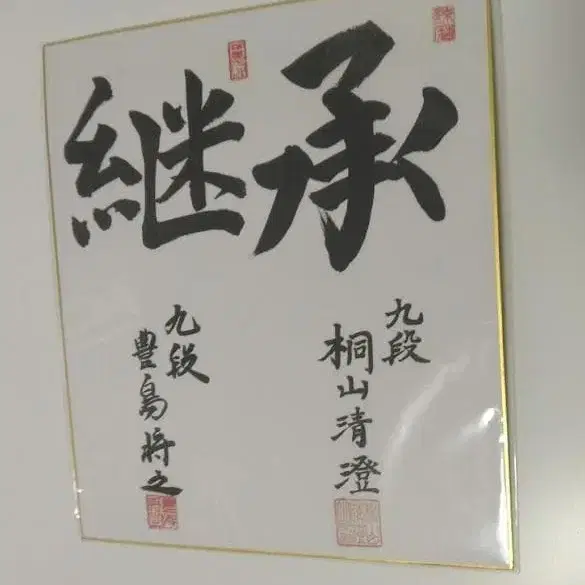 承継
九段
桐山清澄
九段
豊島将之